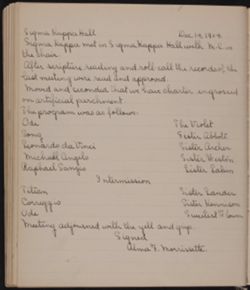 Sigma Kappa Hall Dec 14,
Sigma Kappa met in Sigma Kappa Hall with in
the chair.
After scripture reading and roll call the records of the
last meeting were read and approved.
Moved and seconded that we have charter engrossed
on artificial parchment.
The program was as follows:
Ode The Violet
Song Sister Abbott
Leonardo da Vinci Sister Archer
Michael Angelo Sister Weston
Raphael Sanzio Sister
Intermission
Titian Sister
Correggio Sister Kennison
Ode Sweetest Flower
Meeting adjourned with the yell and grip.
Signed
Alma F. Morrissette.